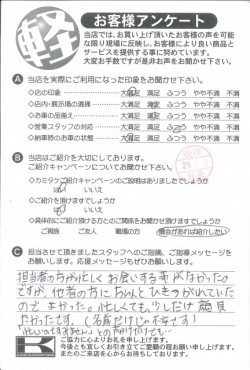 軽
お客様アンケート
当店では、お買い上げ頂いたお客様の声を可能
な限り現場に反映し、お客様により良い商品と
サービスを提供する事に努めています。
大変お手数ですが是非お声をお聞かせ下さい。
A 当店を実際にご利用になった印象をお聞かせ下さい。
◇店の印象 大満足 満足 ふつう やや不満 不満
◇店内・展示場の清掃 大満足 満足 ふつう やや不満 不満
◇お車の品揃え 大満足 満足 ふつう やや不満 不満
◇営業スタッフの対応 大満足 満足 ふつう やや不満 不満
◇納車時のお車の状態 大満足 満足 ふつう やや不満 不満
B 当店はご紹介を大切にしてあります。
ご紹介キャンペーンについてお聞かせ下さい。
◇カミタケご紹介キャンペーンのご説明はありましたでしょうか
はい いいえ
◇ご紹介を頂けますでしょうか
はい いいえ
◇具体的にご紹介頂ける方とのご関係をお聞かせ頂けますでしょうか
ご親族 ご友人 職場の方 機会があれば紹介したい
C 担当させて頂きましたスタッフへのご指摘、ご指導メッセージを
お願いします。応援メッセージもぜひお願いします。
担当者の方が忙しくお会いする事がなかった
ですが、他者の方にちゃんと
ので よかった。忙しくても少しだけ顔見
たかったです。(名前だけじゃ不安です)
K
ご協力によりお礼を申し上げます。
今後とも宜しくお引き立てご愛顧の程お願い申し上げます。
またのご来店を心からお待ちしております。